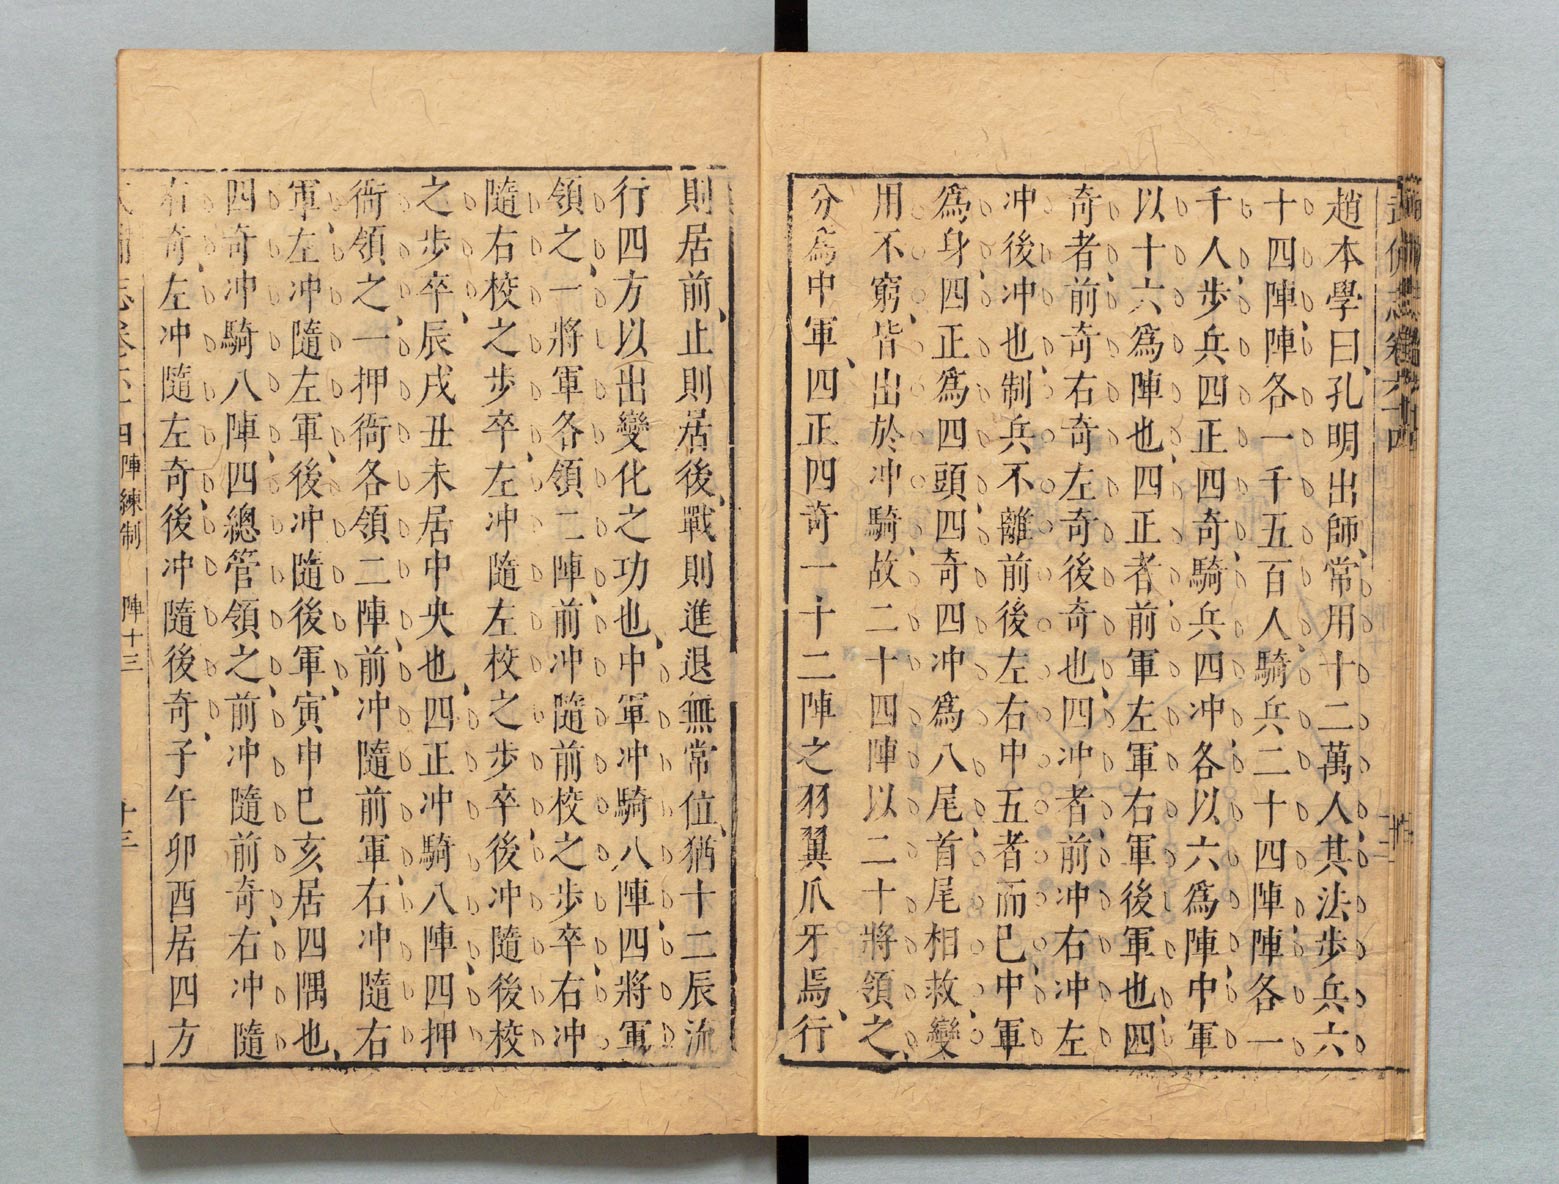 趙本學曰孔明出師常用十二萬人其法步兵六
十四陣陣各一千五百人騎兵二十四陣陣各一
千人步兵四正四奇騎兵四冲各以六爲陣中軍
以十六爲陣也四正者前軍左軍右軍後軍也四
奇者前奇右奇左奇後奇也四冲者前冲右冲左
冲後冲也制兵不離前後左右中五者而已中軍
爲身四正爲四頭四奇四冲爲八尾首尾相救變
用不窮皆出於冲騎故二十四陣以二十將領之
分爲中軍四正四奇一十二陣之羽翼爪牙焉行
則居前止則居後戰則進退無常位猶十二辰流
行四方以出變化之功也中軍冲騎八陣四將軍
領之一將軍各領二陣前冲隨前校之步卒右冲
隨右校之步卒左冲隨左校之步卒後冲隨後校
之步卒辰戌丑未居中央也四正冲騎八陣四押
衙領之一押衙各領二陣前冲隨前軍右冲隨右
軍左冲隨左軍後冲隨後軍寅申巳亥居四隅也
四奇冲騎八陣四總管領之前冲隨前奇右冲隨
右奇左冲隨左奇後冲隨後奇子午卯酉居四方
陣練制 陣十三